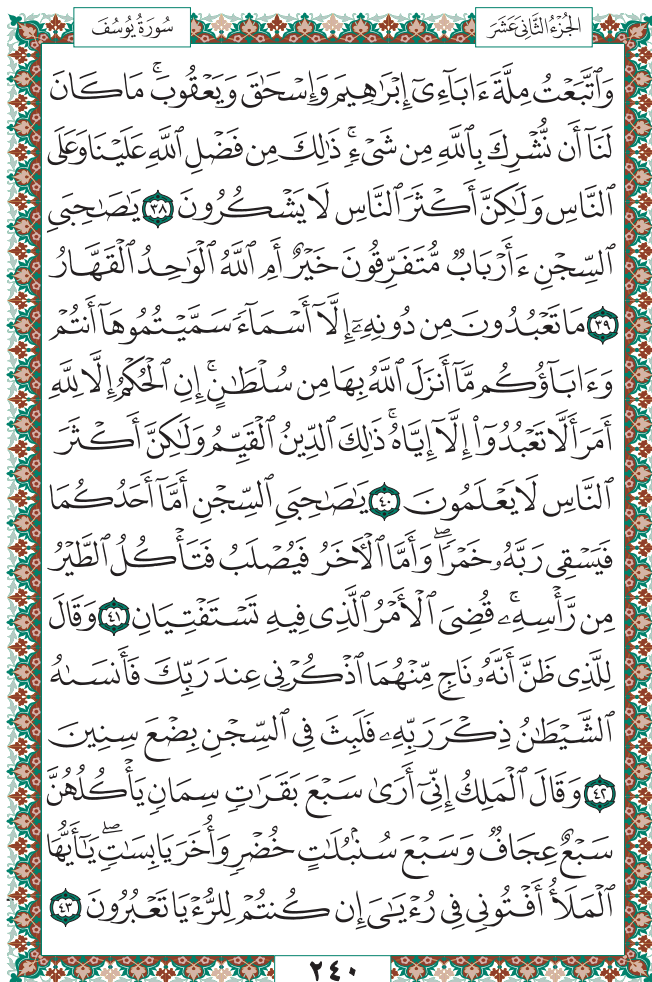 سُورَةُ يُوسُفَ
الجُزْءُ الثَّانِيَ عَشَرَ
وَٱتَّبَعْتُ مِلَّةَ ءَابَآءِىٓ إِبْرَٰهِيمَ وَإِسْحَٰقَ وَيَعْقُوبَۚ مَا كَانَ
لَنَآ أَن نُّشْرِكَ بِٱللَّهِ مِن شَىْءٍۚ ذَٰلِكَ مِن فَضْلِ ٱللَّهِ عَلَيْنَا وَعَلَى
ٱلنَّاسِ وَلَٰكِنَّ أَكْثَرَ ٱلنَّاسِ لَا يَشْكُرُونَ ٣٨ يَٰصَٰحِبَىِ
ٱلسِّجْنِ ءَأَرْبَابٌ مُّتَفَرِّقُونَ خَيْرٌ أَمِ ٱللَّهُ ٱلْوَٰحِدُ ٱلْقَهَّارُ
٣٩ مَا تَعْبُدُونَ مِن دُونِهِۦٓ إِلَّآ أَسْمَآءً سَمَّيْتُمُوهَآ أَنتُمْ
وَءَابَآؤُكُم مَّآ أَنزَلَ ٱللَّهُ بِهَا مِن سُلْطَٰنٍۚ إِنِ ٱلْحُكْمُ إِلَّا لِلَّهِ
أَمَرَ أَلَّا تَعْبُدُوٓا۟ إِلَّآ إِيَّاهُۚ ذَٰلِكَ ٱلدِّينُ ٱلْقَيِّمُ وَلَٰكِنَّ أَكْثَرَ
ٱلنَّاسِ لَا يَعْلَمُونَ ٤٠ يَٰصَٰحِبَىِ ٱلسِّجْنِ أَمَّآ أَحَدُكُمَا
فَيَسْقِى رَبَّهُۥ خَمْرًاۖ وَأَمَّا ٱلْءَاخَرُ فَيُصْلَبُ فَتَأْكُلُ ٱلطَّيْرُ
مِن رَّأْسِهِۦۚ قُضِىَ ٱلْأَمْرُ ٱلَّذِى فِيهِ تَسْتَفْتِيَانِ ٤١ وَقَالَ
لِلَّذِى ظَنَّ أَنَّهُۥ نَاجٍ مِّنْهُمَا ٱذْكُرْنِى عِندَ رَبِّكَ فَأَنسَىٰهُ
ٱلشَّيْطَٰنُ ذِكْرَ رَبِّهِۦ فَلَبِثَ فِى ٱلسِّجْنِ بِضْعَ سِنِينَ
٤٢ وَقَالَ ٱلْمَلِكُ إِنِّىٓ أَرَىٰ سَبْعَ بَقَرَٰتٍ سِمَانٍ يَأْكُلُهُنَّ
سَبْعٌ عِجَافٌ وَسَبْعَ سُنۢبُلَٰتٍ خُضْرٍ وَأُخَرَ يَابِسَٰتٍۖ يَٰٓأَيُّهَا
ٱلْمَلَأُ أَفْتُونِى فِى رُءْيَٰىَ إِن كُنتُمْ لِلرُّءْيَا تَعْبُرُونَ ٤٣
٢٤٠